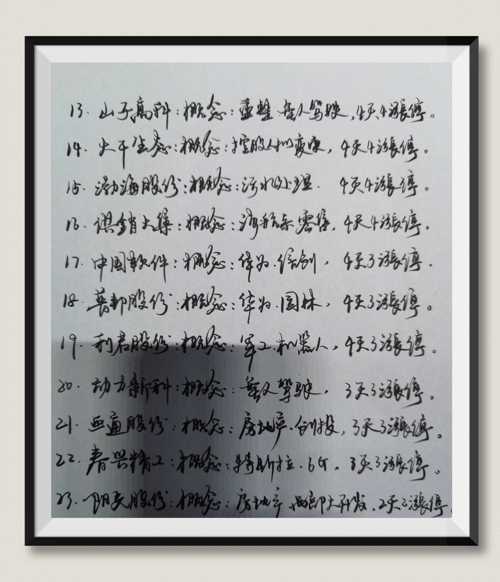 13. 山子高科：概念：重整.无人驾驶，4天4涨停。
14. 大千生态：概念：控股人变更，4天4涨停。
15. 渤海股份：概念：污水处理. 4天4涨停。
16. 供销大集：概念：海航系零售，4天4涨停。
17. 中国软件：概念：华为.信创，4天3涨停.
18. 英邦股份：概念：华为.园林，4天3涨停。
19. 利君股份：概念：军工.机器人，4天3涨停。
20. 动力新科：概念：无人驾驶，3天3涨停。
21. 亚通股份：概念：房地产.创投，3天3涨停。
22. 春兴精工：概念：特斯拉.6G。3天3涨停。
23. 阳光股份：概念：房地产.西部大开发.2天2涨停